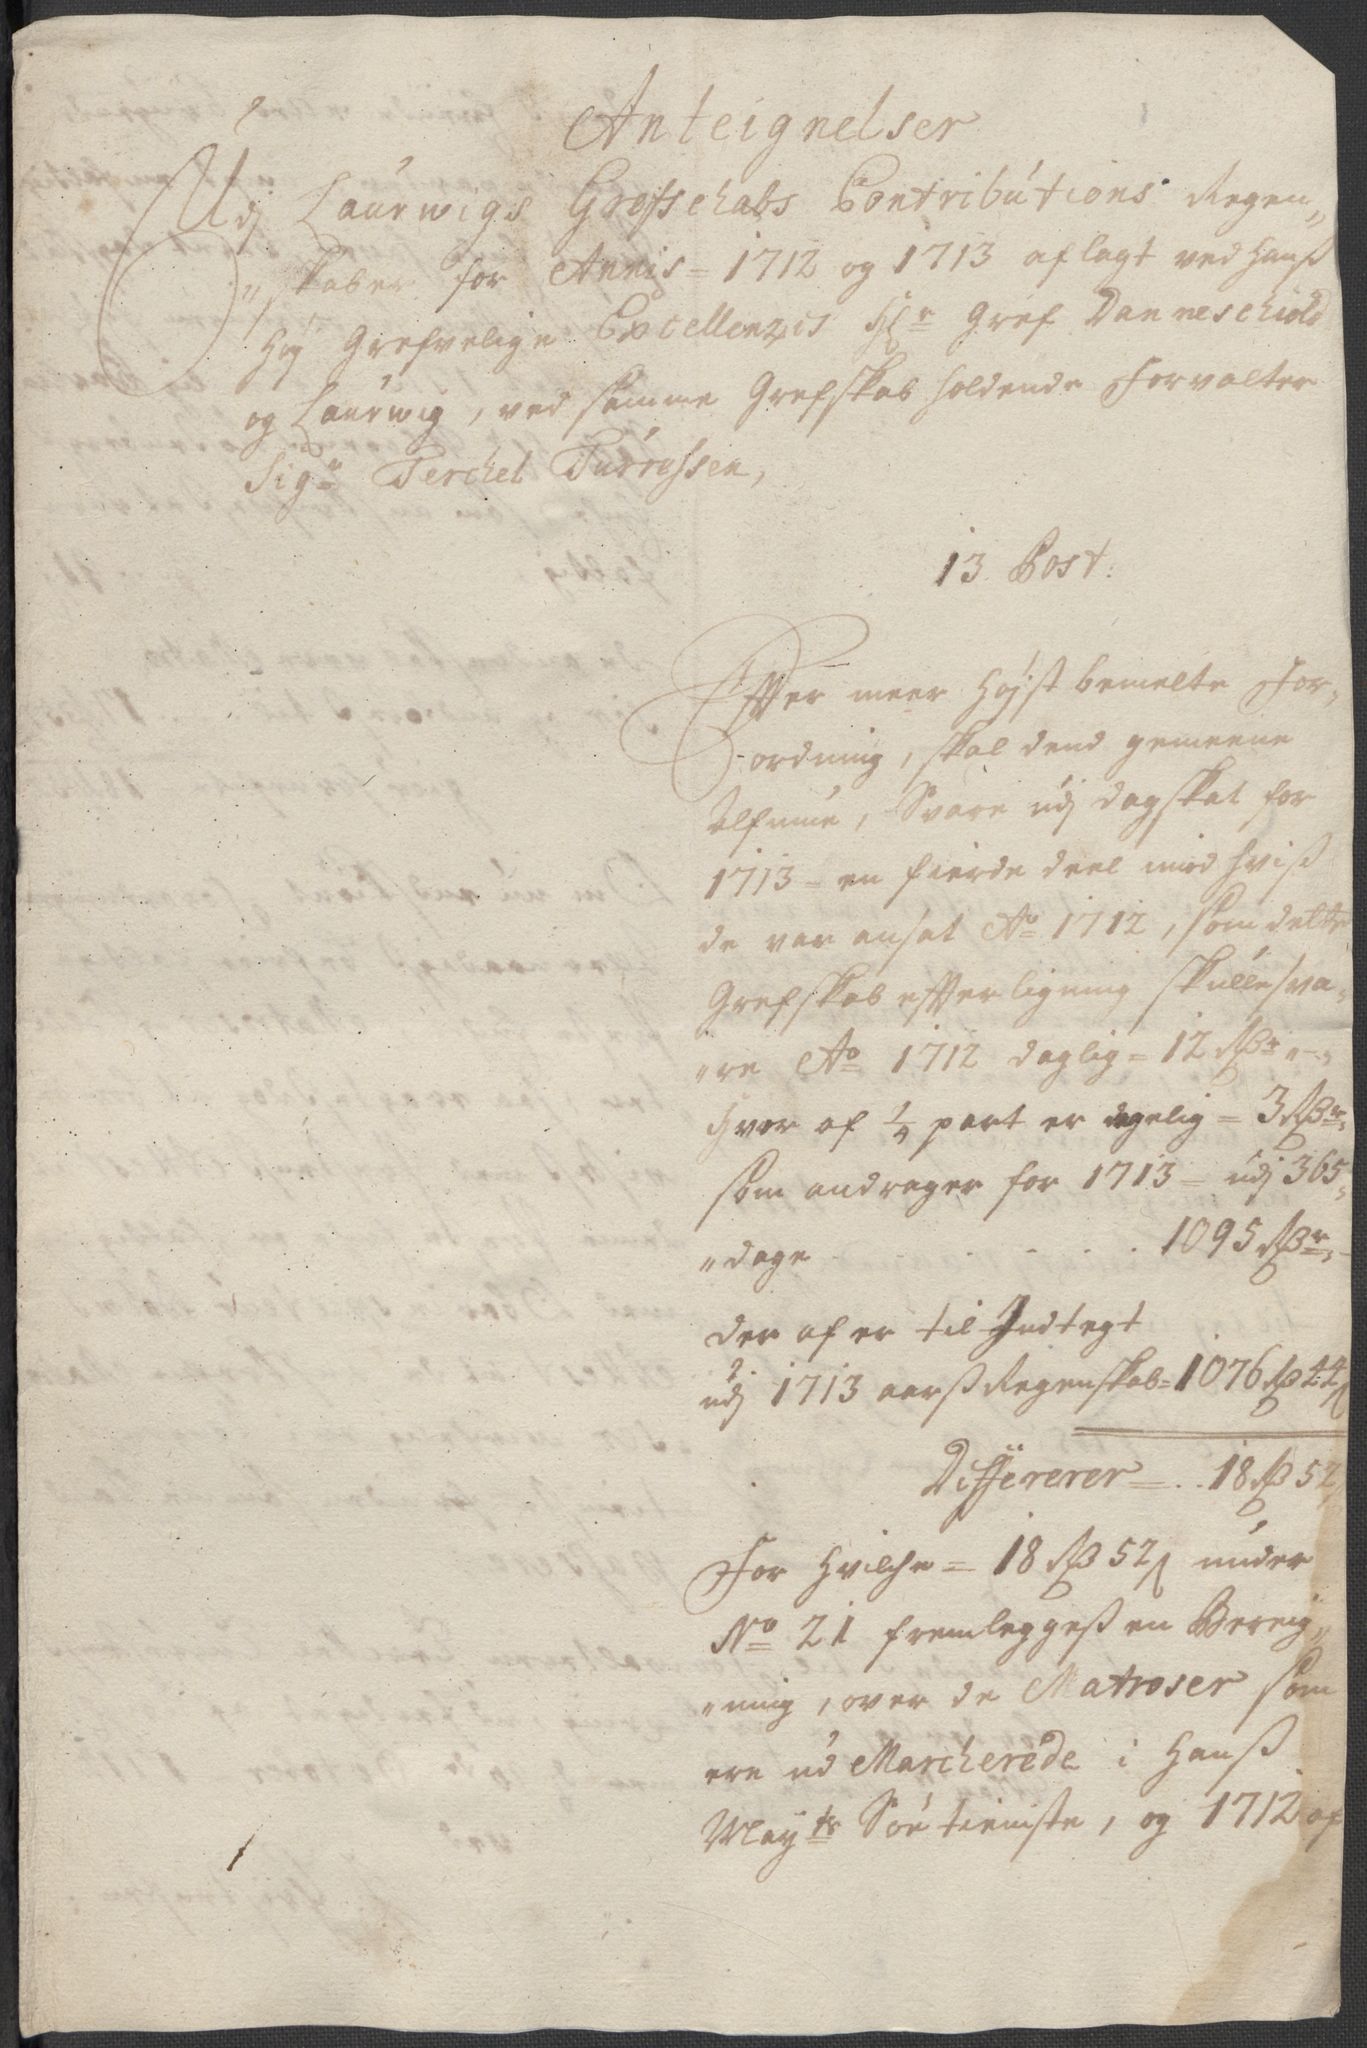 Anteignelser
Udj Laurwigs Grefschabs Contributions Regen„
„skaber for Annis = 1712 og 1713 aflagt ved Hanß
Høj Grefvelige Excellenzis Hr Gref Danneschiold
og Laurwig, ved samme Grefskab holdende Forvalter
Sigr Terchel Turresen,
13 Post:
Effter meer Højst bemelte For„
„ordning, skal dend gemeene
Alfmue, Svare udj dagskat for
1713 = en fierde deel mod hviß
de var ansat Ao 1712, som dette
Grefskab effter ligning skulle sva„
„re Ao 1712 daglig = 12 Rdr „-„
hvor af 1/4 part er dagelig = 3 Rdr„
som andrager for 1713 = udj 365„
„dage . . . . . 1095 Rdr„-
der af er til Indtegt
udj 1713 aarß Regenskab = 1076 Rd 44 ß
Differerer = . . 18 Rd 52
For Hvilche = 18 Rd 52 ß under
No 21 fremleggeß en Bereig„
„ning, over de Matroser som
ere ud Marcherede i Hanß
Mayts Søe tieniste, og 1712 af